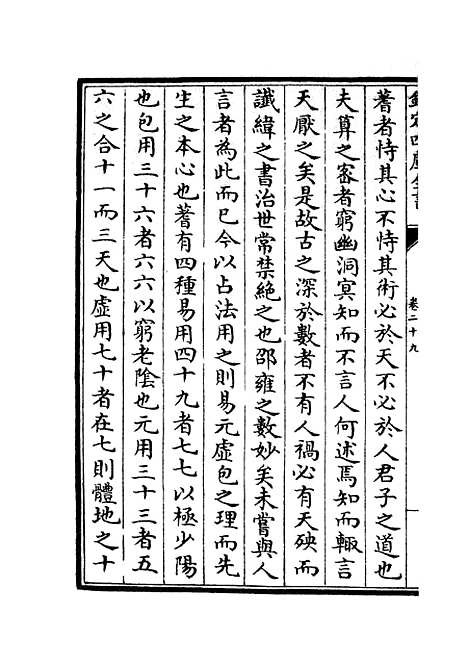 卷二十九
蓍者恃其心不恃其術必於天不必於人君子之道也
夫算之密者窮幽洞冥知而不言人何述焉知而輙言
天厭之矣是故古之深於數者不有人禍必有天殃而
讖緯之書治世常禁絶之也邵雍之數妙矣未嘗與人
言者為此而已今以占法用之則易元虛包之理而先
生之本心也蓍有四種易用四十九者七七以極少陽
也包用三十六者六六以窮老陰也元用三十三者五
六之合十一而三天也虛用七十者在七則體地之十